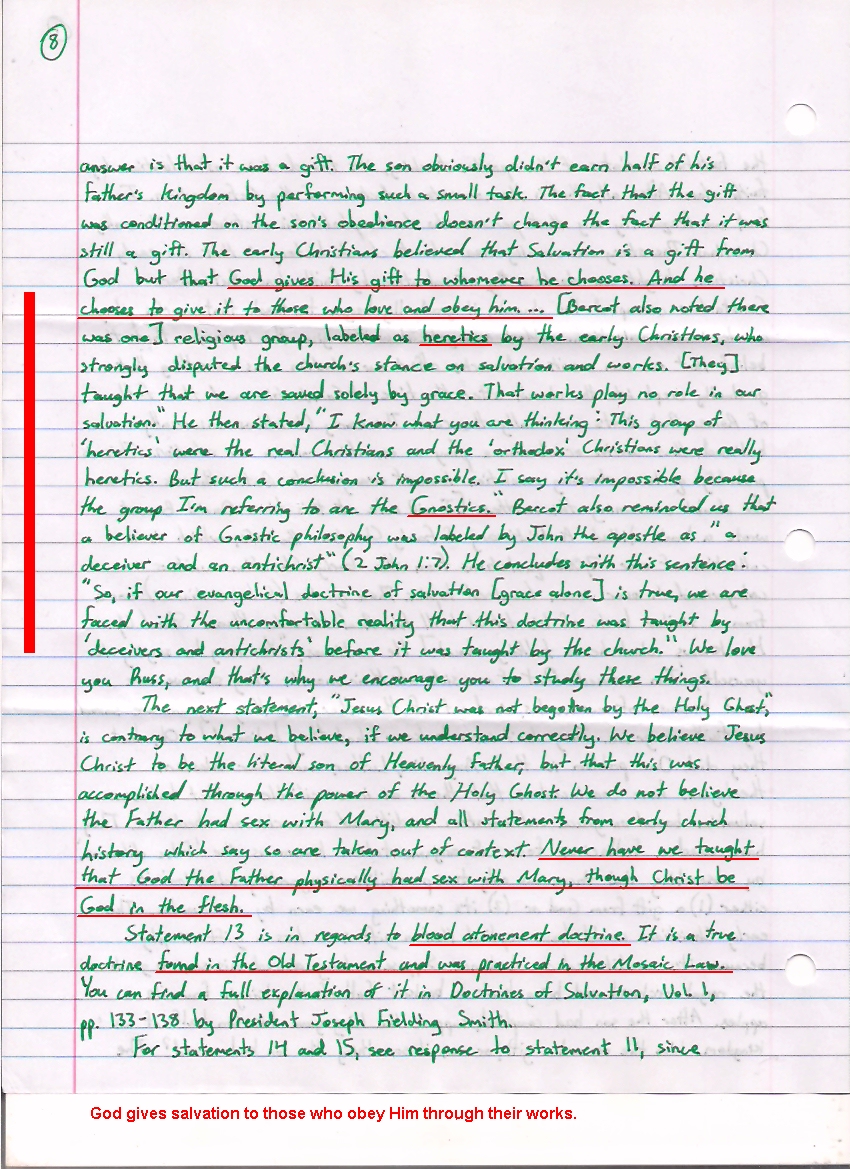 8
answer is that it was a gift. The son obviously didn't earn half of his
father's kingdom by performing such a small task. The fact that the gift
was conditioned on the son's obedience doesn't change the fact that it was
still a gift. The early Christians believed that Salvation is a gift from
God but that God gives His gift to whomever he chooses. And he
chooses to give it to those who love and obey him.... [Bercot also noted there
was one] religious group, labeled as heretics by the early Christians, who
strongly disputed the church's stance on salvation and works. [They]
taught that we are saved solely by grace. That works play no role in our
salvation." He then stated, "I know what you are thinking: This group of
'heretics' were the real Christians and the 'orthodox' Christians were really
heretics. But such a conclusion is impossible. I say it's impossible because
the group I'm referring to are the Gnostics." Bercot also reminded us that
a believer of Gnostic philosophy was labeled by John the apostle as "a
deceiver and an antichrist" (2 John 1:7). He concludes with this sentence:
"So, if our evangelical doctrine of salvation [grace alone] is true, we are
faced with the uncomfortable reality that this doctrine was taught by
'deceivers and antichrists' before it was taught by the church." We love
you Russ, and that's why we encourage you to study these things.
The next statement, "Jesus Christ was not begotten by the Holy Ghost,"
is contrary to what we believe, if we understand correctly. We believe Jesus
Christ to be the literal son of Heavenly Father, but that this was
accomplished through the power of the Holy Ghost. We do not believe
the Father had sex with Mary, and all statements from early church
history which say so are taken out of context. Never have we taught
that God the Father physically had sex with Mary, though Christ be
God in the flesh.
Statement 13 is in regards to blood atonement doctrine. It is a true
doctrine found in the Old Testament and was practiced in the Mosaic Law.
You can find a full explanation of it in Doctrines of Salvation, Vol. 1,
pp. 133-138 by President Joseph Fielding Smith.
For statements 14 and 15, see response to statement 11, since
God gives salvation to those who obey Him through their works.